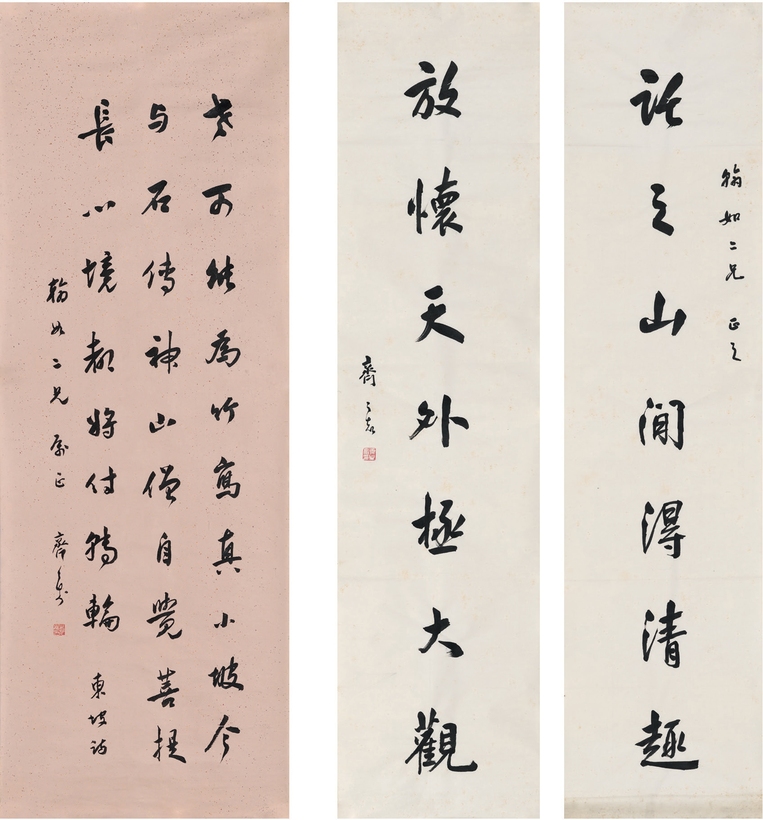 翰如二兄 正之
託足山間得清趣
放懷天外極大觀
齊之
老可能為竹寫真小坡今
与石傳神山僧自覺菩提
長心境都將付臥輪 東坡詩
翰如二兄屬正 齊之